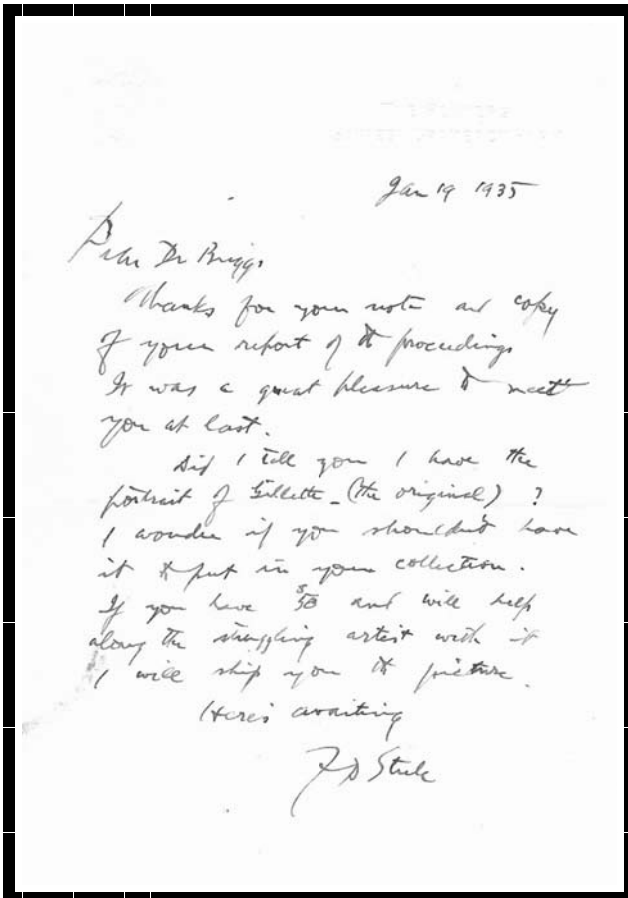 Jan 19 1935
Dear Dr Briggs
Thanks for your note and copy
of your report of the proceedings
It was a great pleasure to meet
you at last.
Did I tell you I have the
portrait of Gillette - (the original) ?
I wonder if you shouldn't have
it to put in your collection.
If you have $50 and will help
along the struggling artist with it
I will ship you the picture.
Here's awaiting
F D Steele